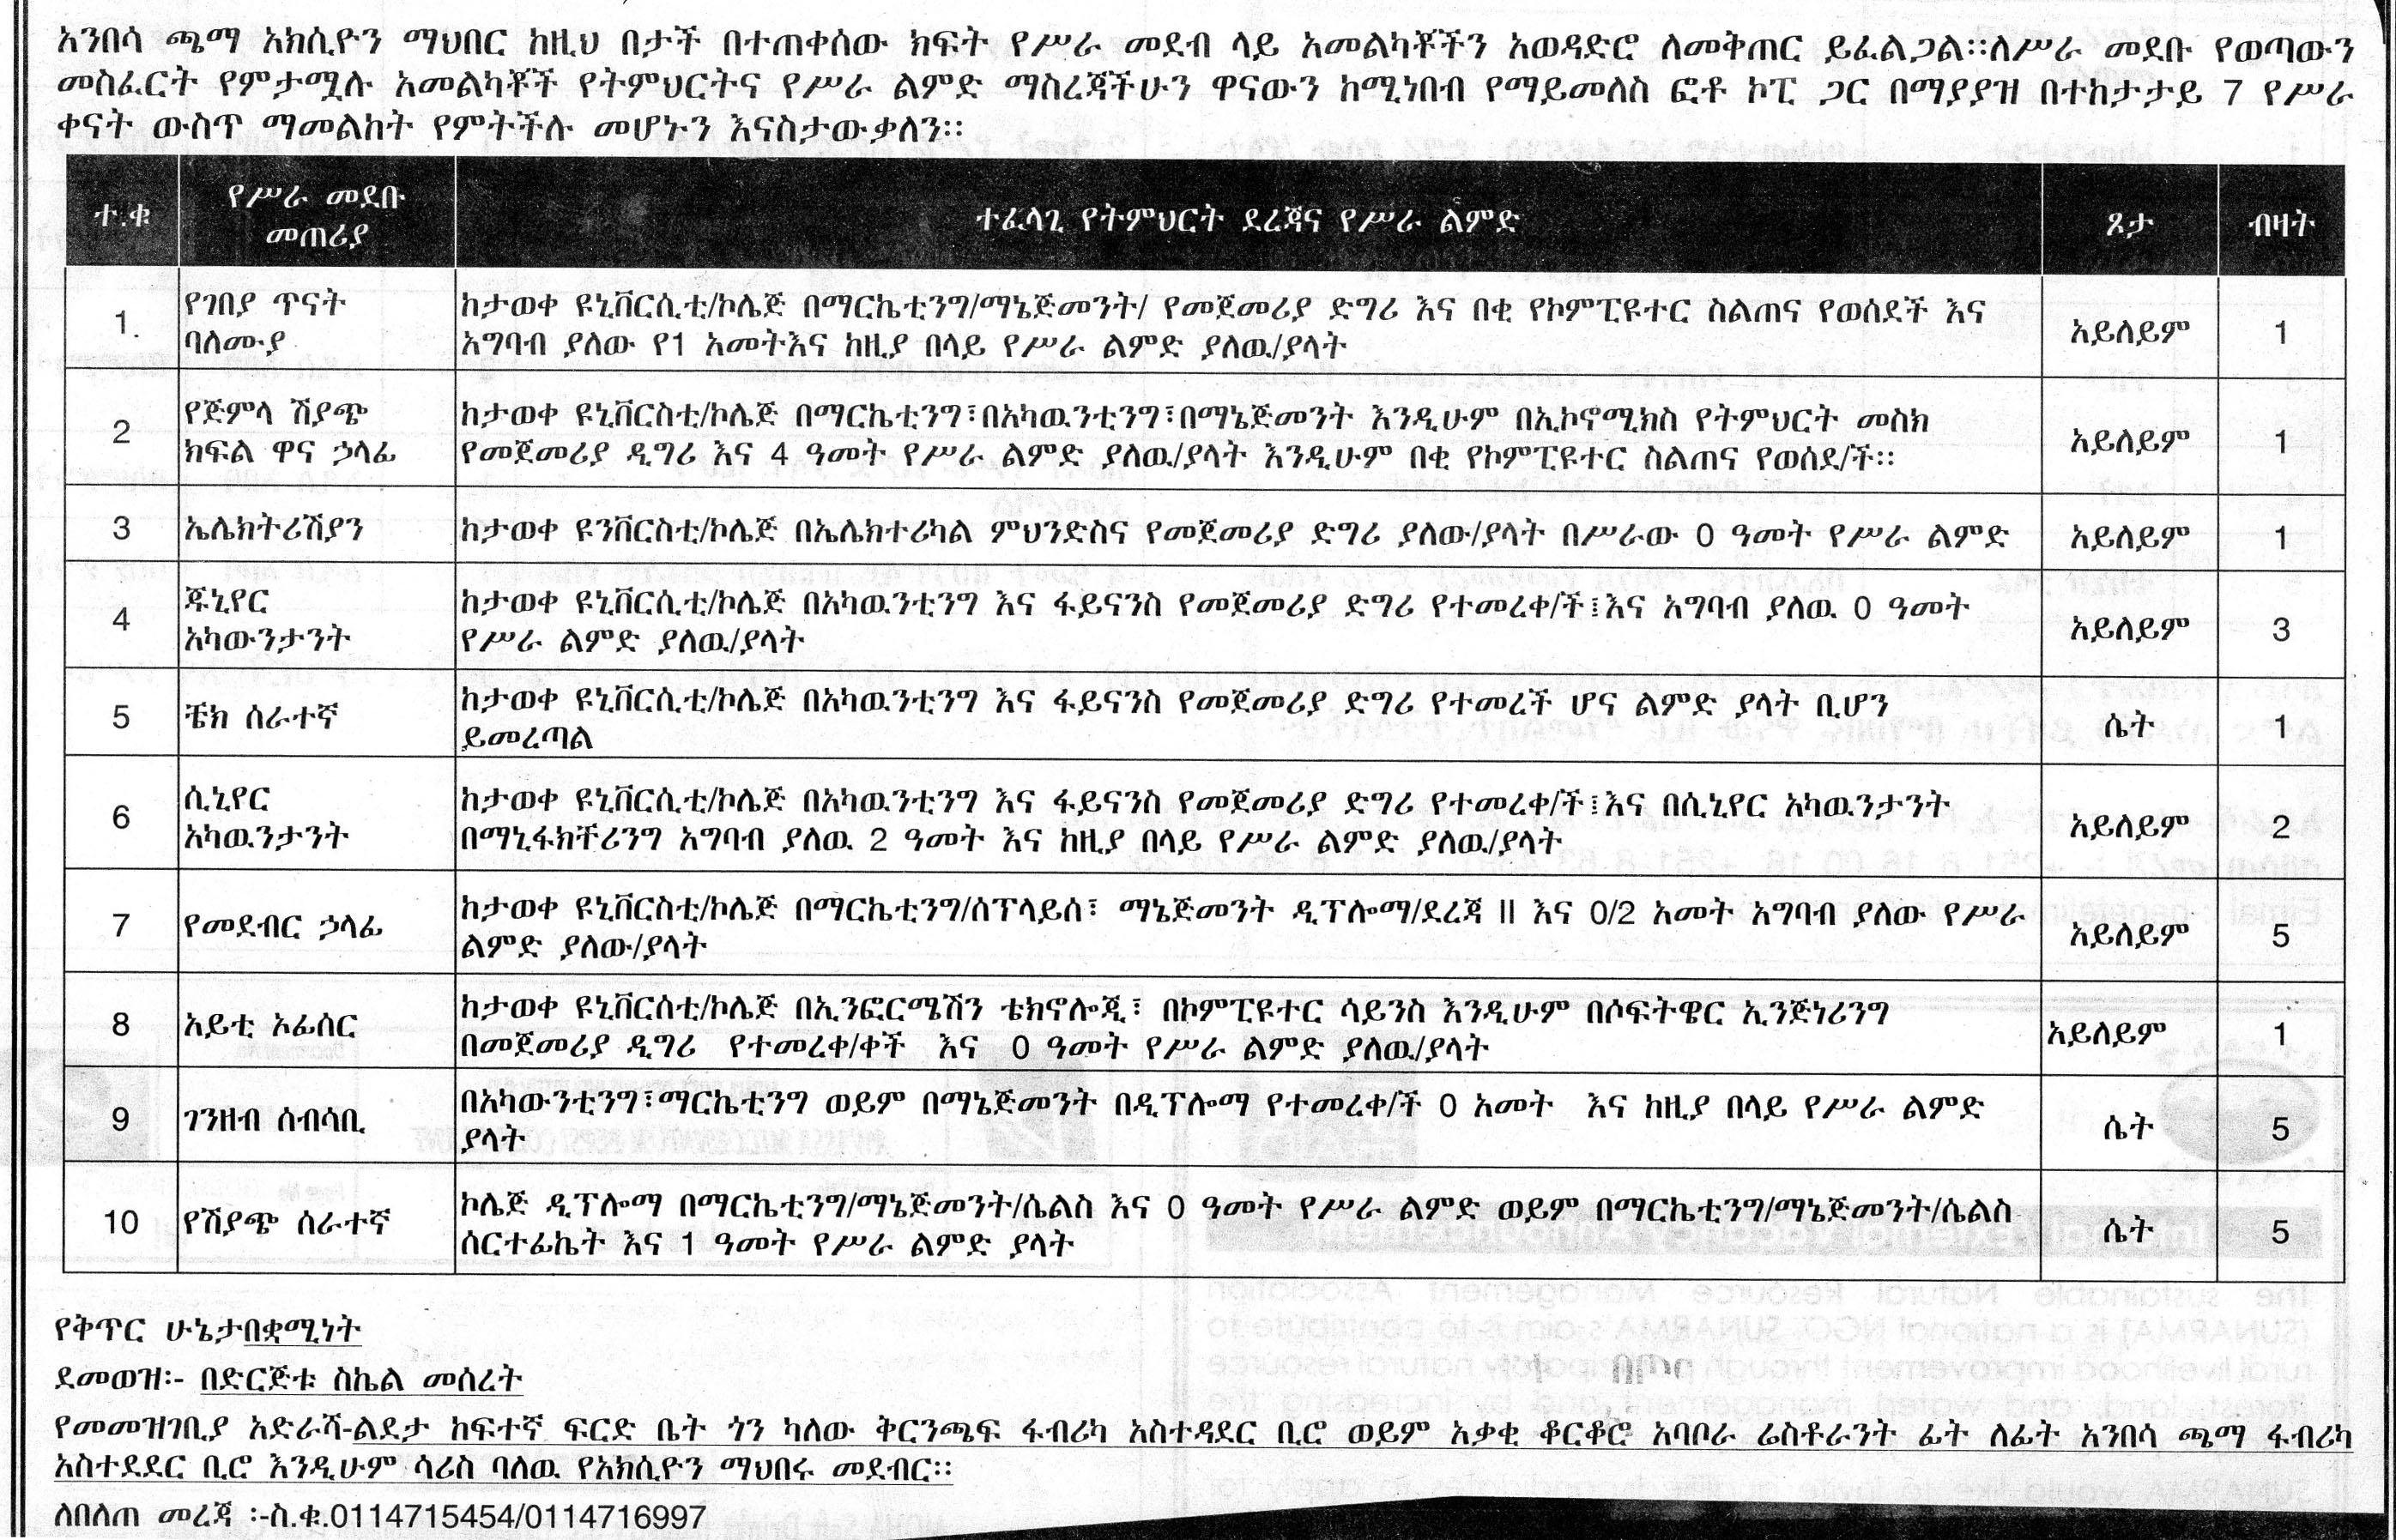 አንበሳ ጫማ አክሲዮን ማህበር ከዚህ በታች በተጠቀሰው ክፍት የሥራ መደብ ላይ አመልካቾችን አወዳድሮ ለመቅጠር ይፈልጋል፡፡ለሥራ መደቡ የወጣውን
መስፈርት የምታሟሉ አመልካቾች የትምህርትና የሥራ ልምድ ማስረጃችሁን ዋናውን ከሚነበብ የማይመለስ ፎቶ ኮፒ ጋር በማያያዝ በተከታታይ 7 የሥራ
ቀናት ውስጥ ማመልከት የምትችሉ መሆኑን እናስታውቃለን፡፡
ተ.ቁ የሥራ መደቡ መጠሪያ ተፈላጊ የትምህርት ደረጃና የሥራ ልምድ ጾታ ብዛት
1. የገበያ ጥናት ባለሙያ ከታወቀ ዩኒቨርሲቲ/ኮሌጅ በማርኬቲንግ/ማኔጅመንት/ የመጀመሪያ ድግሪ እና በቂ የኮምፒዩተር ስልጠና የወሰደች እና
አግባብ ያለው የ1 አመትእና ከዚያ በላይ የሥራ ልምድ ያለዉ/ያላት አይለይም 1
2 የጅምላ ሽያጭ ክፍል ዋና ኃላፊ ከታወቀ ዩኒቨርስቲ/ኮሌጅ በማርኬቲንግ፣በአካዉንቲንግ፣በማኔጅመንት እንዲሁም በኢኮኖሚክስ የትምህርት መስክ
የመጀመሪያ ዲግሪ እና 4 ዓመት የሥራ ልምድ ያለዉ/ያላት እንዲሁም በቂ የኮምፒዩተር ስልጠና የወሰደ/ች፡፡ አይለይም 1
3 ኤሌክትሪሽያን ከታወቀ ዩንቨርስቲ/ኮሌጅ በኤሌክተሪካል ምህንድስና የመጀመሪያ ድግሪ ያለው/ያላት በሥራው 0 ዓመት የሥራ ልምድ አይለይም 1
4 ጁኒየር አካውንታንት ከታወቀ ዩኒቨርሲቲ/ኮሌጅ በአካዉንቲንግ እና ፋይናንስ የመጀመሪያ ድግሪ የተመረቀ/ች፤እና አግባብ ያለዉ 0 ዓመት
የሥራ ልምድ ያለዉ/ያላት አይለይም 3
5 ቼክ ሰራተኛ ከታወቀ ዩኒቨርሲቲ/ኮሌጅ በአካዉንቲንግ እና ፋይናንስ የመጀመሪያ ድግሪ የተመረች ሆና ልምድ ያላት ቢሆን
ይመረጣል ሴት 1
6 ሲኒየር አካዉንታንት ከታወቀ ዩኒቨርሲቲ/ኮሌጅ በአካዉንቲንግ እና ፋይናንስ የመጀመሪያ ድግሪ የተመረቀ/ች፤እና በሲኒየር አካዉንታንት
በማኒፋክቸሪንግ አግባብ ያለዉ 2 ዓመት እና ከዚያ በላይ የሥራ ልምድ ያለዉ/ያላት አይለይም 2
7 የመደብር ኃላፊ ከታወቀ ዩኒቨርስቲ/ኮሌጅ በማርኬቲንግ/ሰፕላይሰ፣ ማኔጅመንት ዲፕሎማ/ደረጃ II እና 0/2 አመት አግባብ ያለው የሥራ
ልምድ ያለው/ያላት አይለይም 5
8 አይቲ ኦፊሰር ከታወቀ ዩኒቨርሰቲ/ኮሌጅ በኢንፎርሜሽን ቴክኖሎጂ፣ በኮምፒዩተር ሳይንስ እንዲሁም በሶፍትዌር ኢንጅነሪንግ
በመጀመሪያ ዲግሪ የተመረቀ/ቀች እና 0 ዓመት የሥራ ልምድ ያለዉ/ያላት አይለይም 1
9 ገንዘብ ሰብሳቢ በአካውንቲንግ፣ማርኬቲንግ ወይም በማኔጅመንት በዲፕሎማ የተመረቀ/ች 0 አመት እና ከዚያ በላይ የሥራ ልምድ
ያላት ሴት 5
10 የሽያጭ ሰራተኛ ኮሌጅ ዲፕሎማ በማርኬቲንግ/ማኔጅመንት/ሴልስ እና 0 ዓመት የሥራ ልምድ ወይም በማርኬቲንግ/ማኔጅመንት/ሴልስ
ሰርተፊኬት እና 1 ዓመት የሥራ ልምድ ያላት ሴት 5
የቅጥር ሁኔታበቋሚነት
ደመወዝ፡- በድርጅቱ ስኬል መሰረት
የመመዝገቢያ አድራሻ-ልደታ ከፍተኛ ፍርድ ቤት ጎን ካለው ቅርንጫፍ ፋብሪካ አስተዳደር ቢሮ ወይም አቃቂ ቆርቆሮ አባቦራ ሬስቶራንት ፊት ለፊት አንበሳ ጫማ ፋብሪካ
አስተደደር ቢሮ እንዲሁም ሳሪስ ባለዉ የአክሲዮን ማህበሩ መደብር፡፡
ለበለጠ መረጃ ፡-ስ.ቁ.0114715454/0114716997